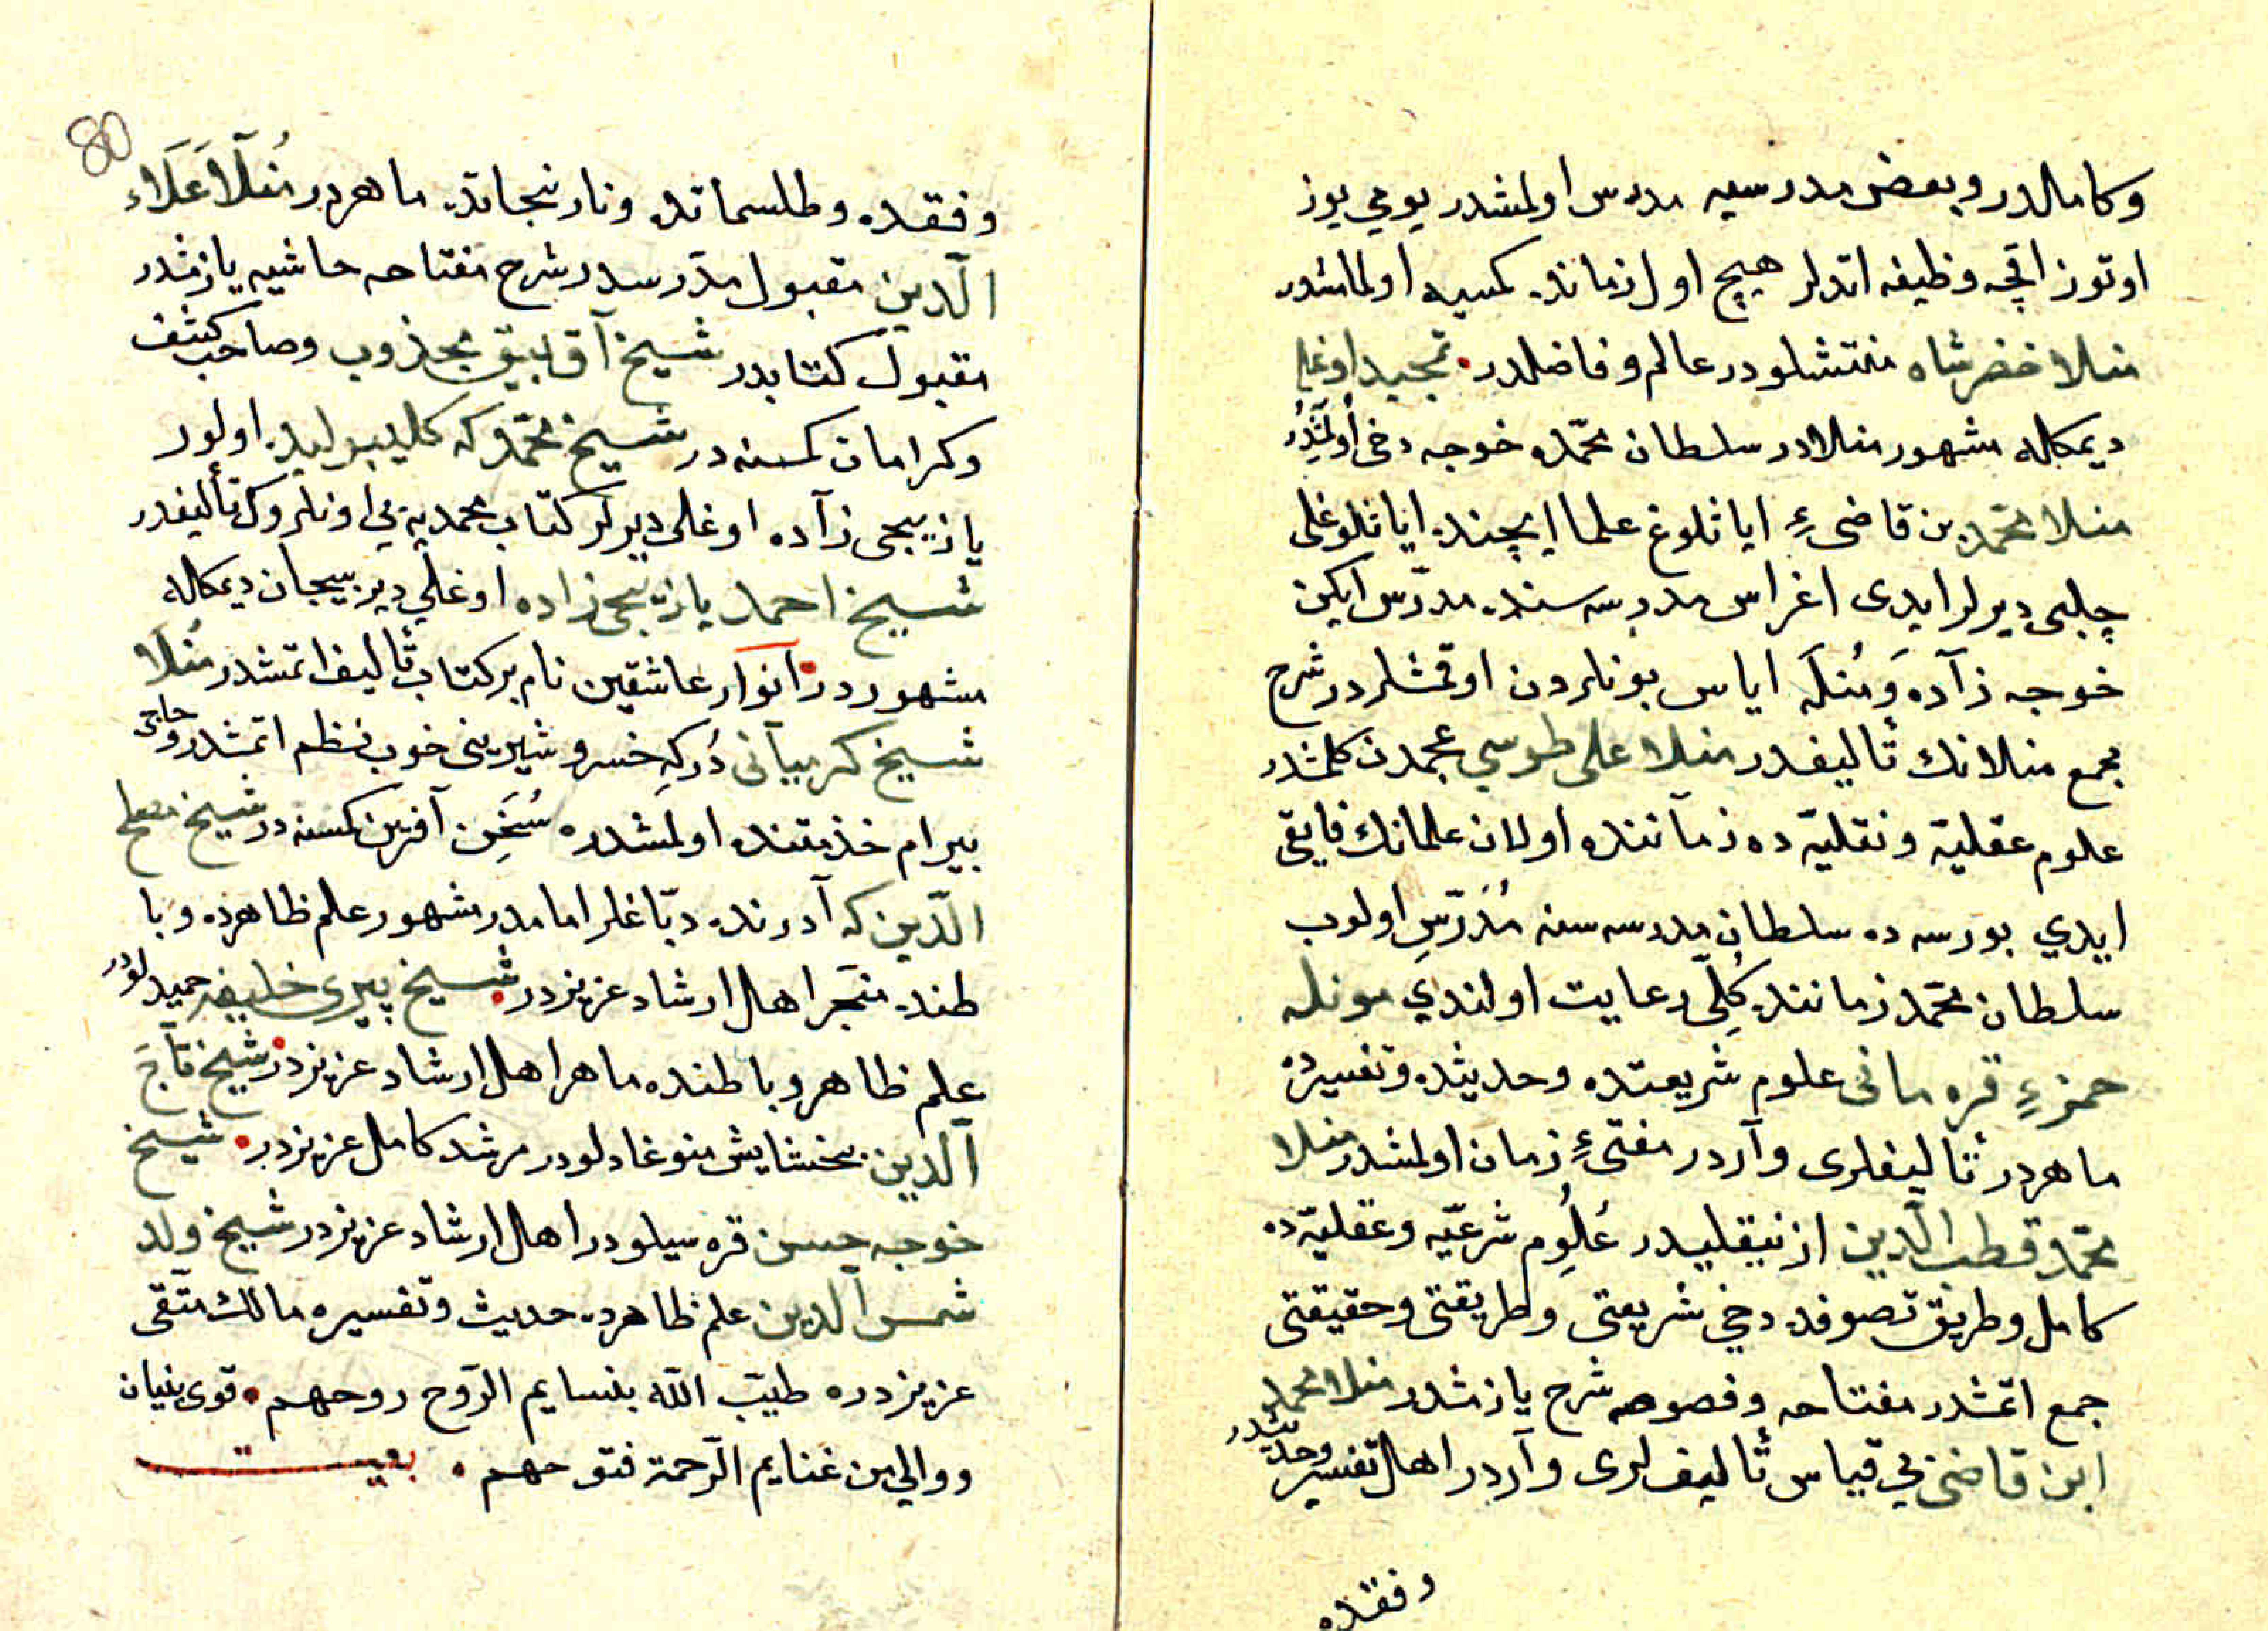 وكامالدر وبعض مدرسيه مدرس اولمشدر يومي يوز
اوتوز اقچه وظيفه اتدلر هيچ اول زمانده كمسيه اولماشدر
منلا خضرشاه منتشلودر عالم وفاضلدر. تجيد اوغلي
ديمكاله مشهور منلادر سلطان محمّده خوجه دخى اُولمَشدُر
منلا محمّد بن قاضىءِ اياثلوغ علما ايچنده اياثلوغلى
چلبى ديرلر ايدى اغراس مدرسه سنده مدرّس ايكن
خوجه زآده وَمُنلَه اياس بونلردن اوقمشلردر شرح
مجمع منلانك تأليفدر منلا على طوسي عجمدن كلمشدر
علوم عقليّة ونقليّة ده زمآننده اولان علمانك فايقى
ايدي بورسه ده سلطان مدرسه سنه مُدَرّسِ اولوب
سلطان محمّد زماننده كُلّى رعايت اولندي مونله
حمزءِ قره مانى علوم شريعتده وحديثده وتفسيرده
ماهردر تأليفلرى وآردر مفتىءِ زمان اولمشدر منلا
محمّد قطب الدّين ازنيقليدر عُلُوم شرعيّه وعقليّة ده
كامل وطريق تصوفده دخي شريعتى وطريقتى وحقيقتى
جمع اتمشدر مفتاحه وفصوصه شرح يازمشدر منلا محمد
ابن قاضى بي قياس تأليف لرى وآردر اهل تفسير وحديثدر
وفقده
80
وفقده وطلسماتده ونارنجاتده ماهردر مُنلَا عَلَاء
الدّين مقبول مدرسدر شرح مفتاحه حاشيه يازمشدر
مقبول كتابدر شيخ آق بيق مجذوب وصاحب كشف
وكرامات كمسنه در شيخ محمّد كه كليبوليده اولور
يازيجى زآده اوغلى ديرلر كتاب محمديه يي اونلروك تأليفدر
شيخ احمد يازيجى زاده اوغلي دير بيجان ديمكاله
مشهوردر انوار عاشقين نام بر كتاب تأليف اتمشدر مُنلَا
شيخ كرميآنى دُركِه خسرو شيرينى خوب نظم اتمشدر وحاجى
بيرام خذمتنده اولمشدره سُخَن آفرين كمسنه در شيخ مصلح
الدّين كه آدرنده دبّاغلر امامدر مشهور علم ظاهرده وبا
طنده متبحر اهل ارشاد عزيزدر شيخ پيرى خليفه حميدلودر
علم ظاهر وباطنده ماهر اهل ارشاد عزيزدر شيخ تاجَ
الدين بخشايش منوغادلودر مرشد كامل عزيزدر. شيخ
خوجه حسن قره سيلودر اهل ارشاد عزيزدر شيخ ولد
شمس الدين علم ظاهرده حديث وتفسيره مالك متّقى
عزيزدره طيّب اللّه بنسايم الرّوح روحهم. قوى بنيان
ووالي من غنايم الرّحمة فتوحهم. بيت